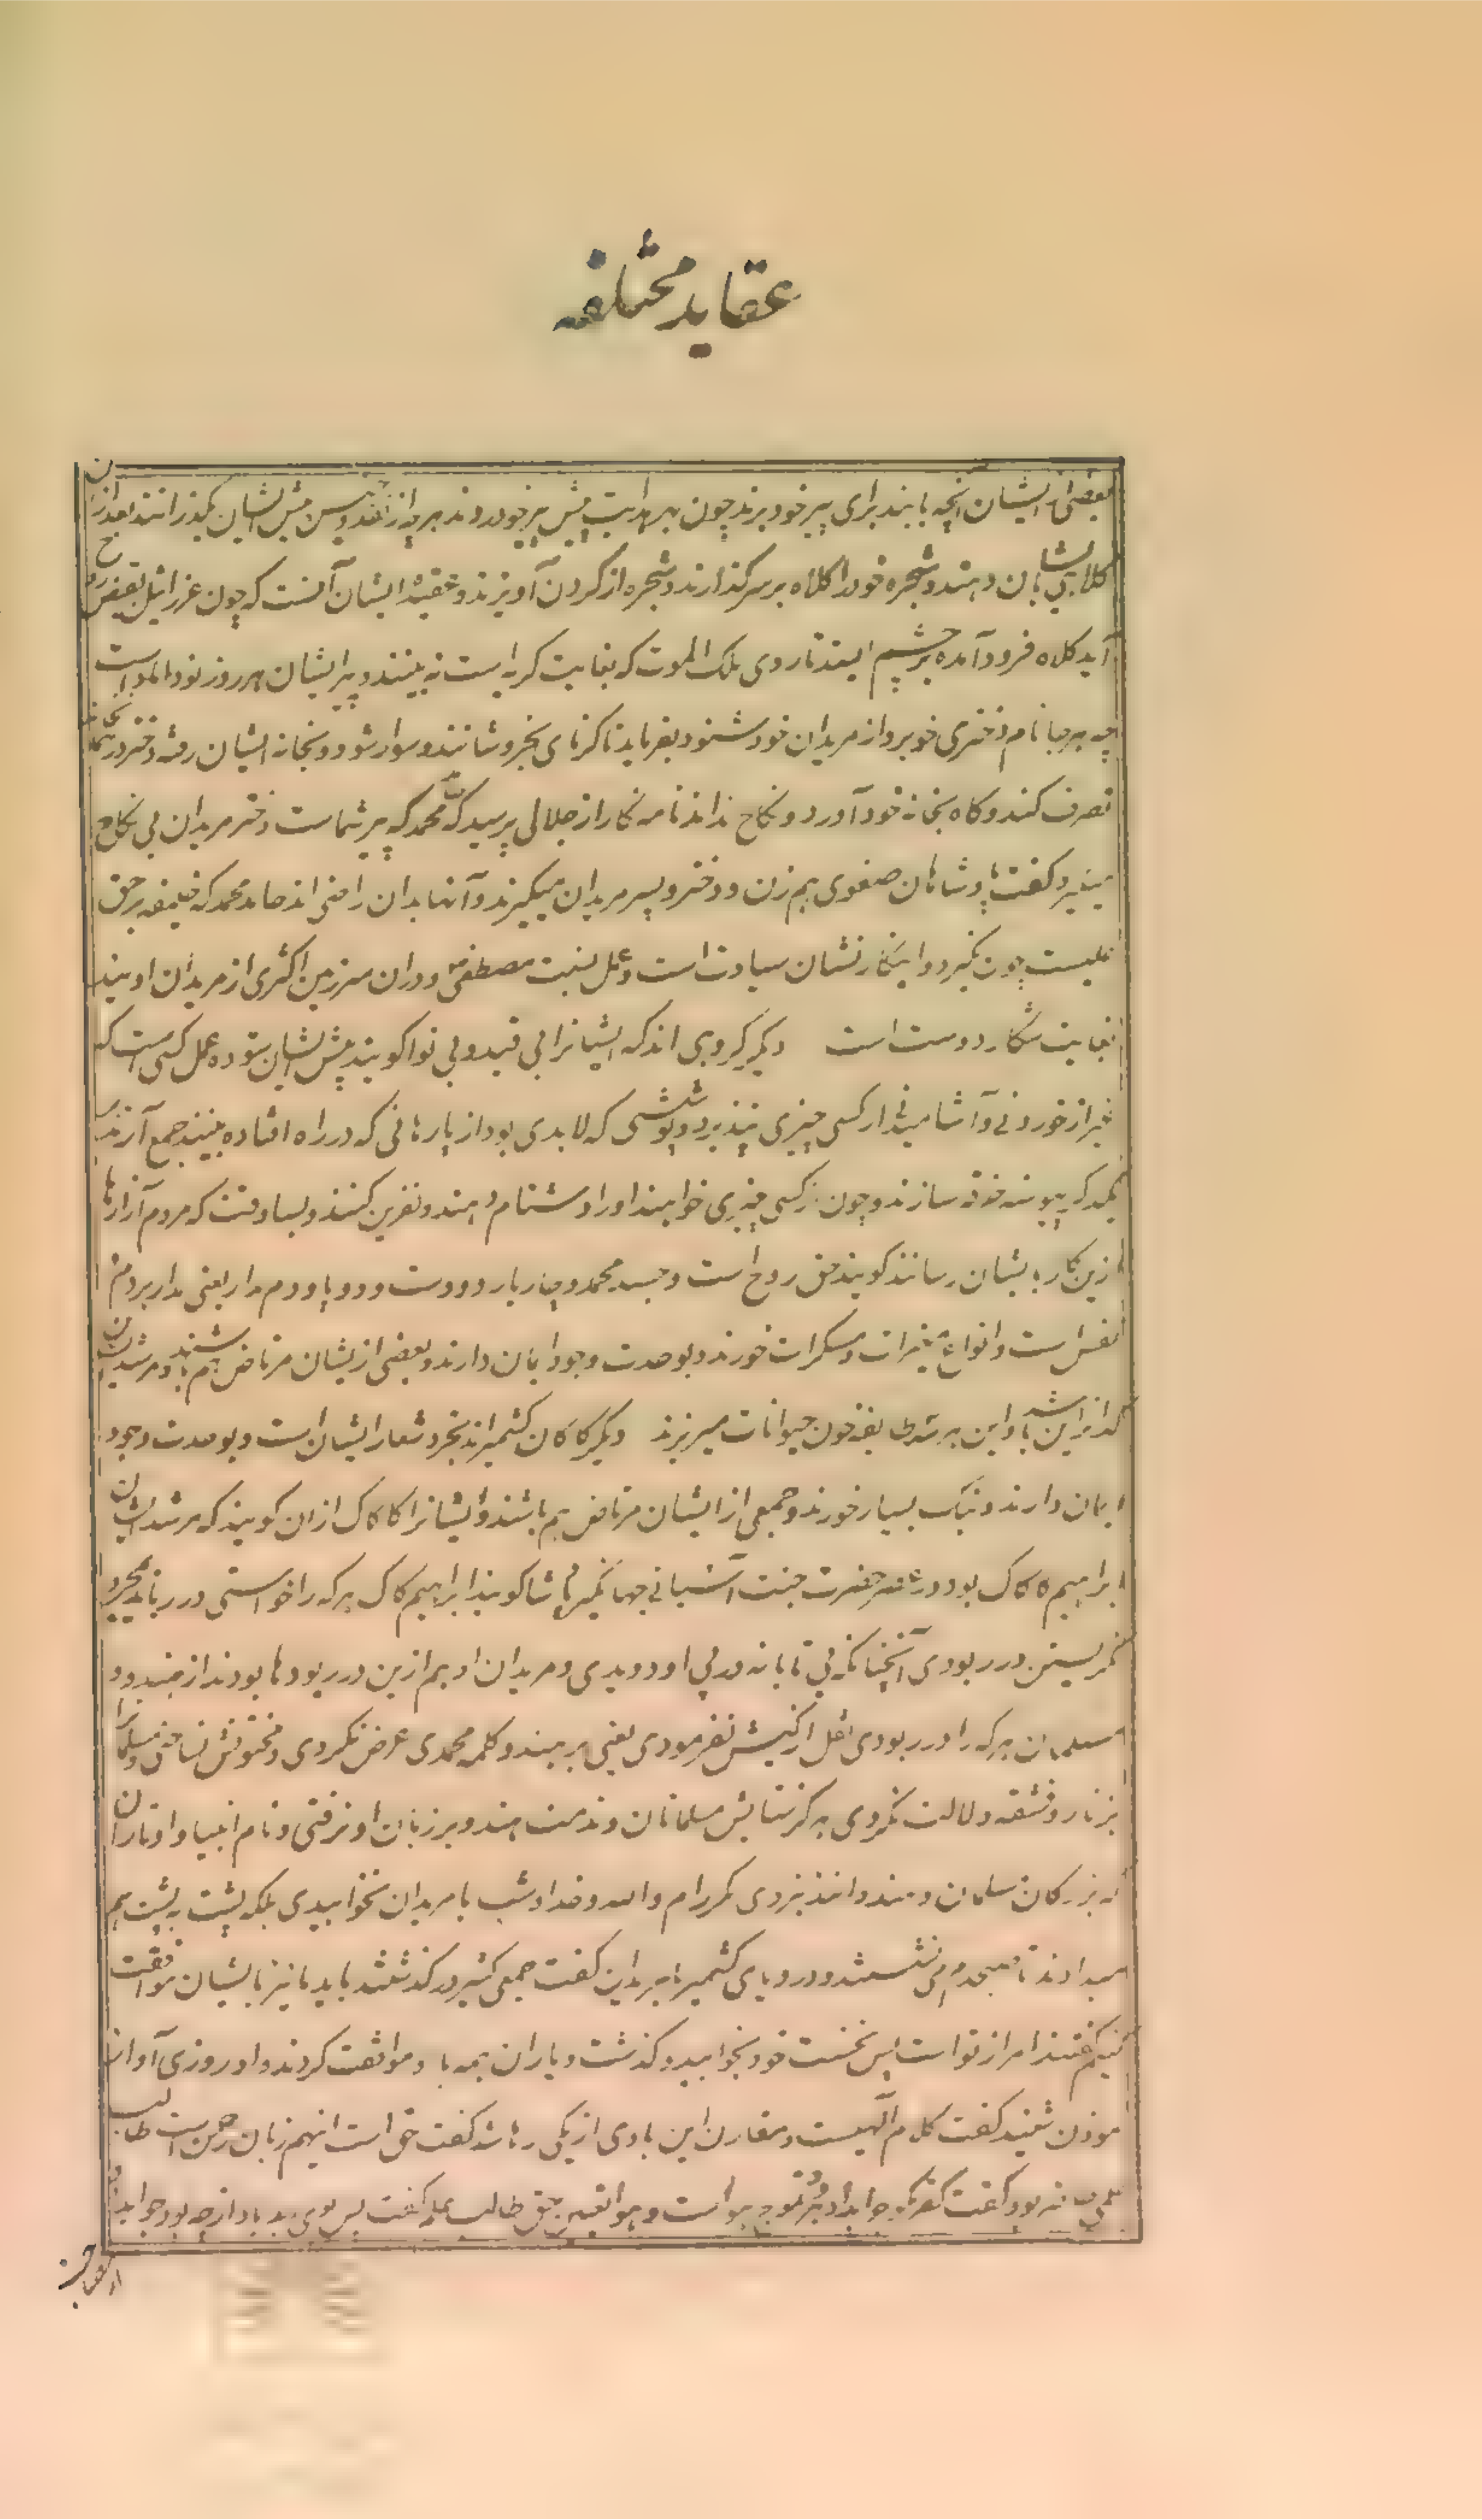 عقاید مختلفه
بعضی از ایشان آنچه یابند برای پیر خود برند چون بهدایت پیش پیر خود روند هر چه از نقد و جنس پیش ایشان بگذرانند بعد ازان
کلاهی بایشان دهند و شجره خود را کلاه بر سر گذارند و شجره از گردن آویزند و عقیده ایشان آنست که چون عزرائیل بقبض روح
آید کلاه فرود آمده بر چشم ایستد تا روی ملک الموت که بغایت کریه است نه بینند و پیر ایشان هر روز نو داماد است
چه هر جا نام دختری خوبرو از مریدان خود شنود بفرماید تا کرنای بخروشانند و سوار شود و بخانه ایشان رفته دختر در
تصرف کند و گاه بخانه خود آورد و نکاح نداند نامه نگار از جلالی پرسید که محمد که پیر شماست دختر مریدان بی نکاح
میگیرد گفت پادشاهان صفوی هم زن و دختر و پسر مریدان میگیرند و آنها بدان راضی اند حامد محمد که خلیفه بر حق
علیست چون نگیرد و اینکار نشان سیادت است و عمل بسنت مصطفی و دران سرزمین اکثری از مریدان اویند
بغایت شکار دوست است دیگر گروهی اند که ایشانرا بی قید و بی نوا گویند پیش ایشان ستوده عمل کسی است که
غیر از خوردنی و آشامیدنی از کسی چیزی نپذیرد و پوششی که لابدی بود از پارهائی که در راه افتاده بینند جمع آرند
بیکدیگر پیوسته خرقه سازند و چون از کسی چیزی خواهند او را دشنام دهند و نفرین کنند و بسا وقت که مردم آزارها
ازین کار بایشان رسانند گویند حق روح است و جسد محمد و چار یار دو دست و دو پا و دم مدار یعنی مدار بر دم
نفس است و انواع مغیرات و مسکرات خورند و بوحدت وجود ایمان دارند و بعضی از ایشان مرتاض هم باشند و مرشد ایشان
ایمان دارند و بنگ بسیار خورند و جمعی از ایشان مرتاض هم باشند و ایشانرا کاکاک ازان گویند که مرشد ایشان
ابراهیم کاکاک بود در عصر حضرت جنت آشیانی جهانگیر پادشاه گویند ابراهیم کاک هر که را خواستی در رباید بمجرد
نگریستن در ربودی آنچنانکه بی تابانه در پی او دویدی و مریدان او هم ازین در ربودها بودند از هندو و
مسلمان هر که را در ربودی نقل از کیش نفرمودی یعنی بر هندو کلمه محمدی عرض نکردی و مختونش نساختی و مسلمانرا
بزنار و قشقه دلالت نکردی هرگز ستایش مسلمانان و مذمت هندو بر زبان او نرفتی و نام انبیا و اوتاران
که بزرگان مسلمان و هندوانند نبردی مگر رام و الله و خدا و شب با مریدان نخوابیدی بلکه پشت به پشت هم
میدادند تا صبحدم می نشستند و در وبای کشمیر با مریدان گفت جمعی کثیر در گذشتند باید ما نیز با ایشان موافقت
کنیم گفتند امر از تو است پس نخست خود بخوابید و گذشت و یاران همه با او موافقت کردند و او روزی آواز
موذن شنید گفت کلام آلهیست و مقارن این بادی از یکی رها شد گفت حق است اینهم زبان رحمن است طالب
علمی بود گفت کفر مگو جواب داد تموج هواست و هوا بغیر حق طالب علم گفت پس بوی بد باد از چه بود جواب